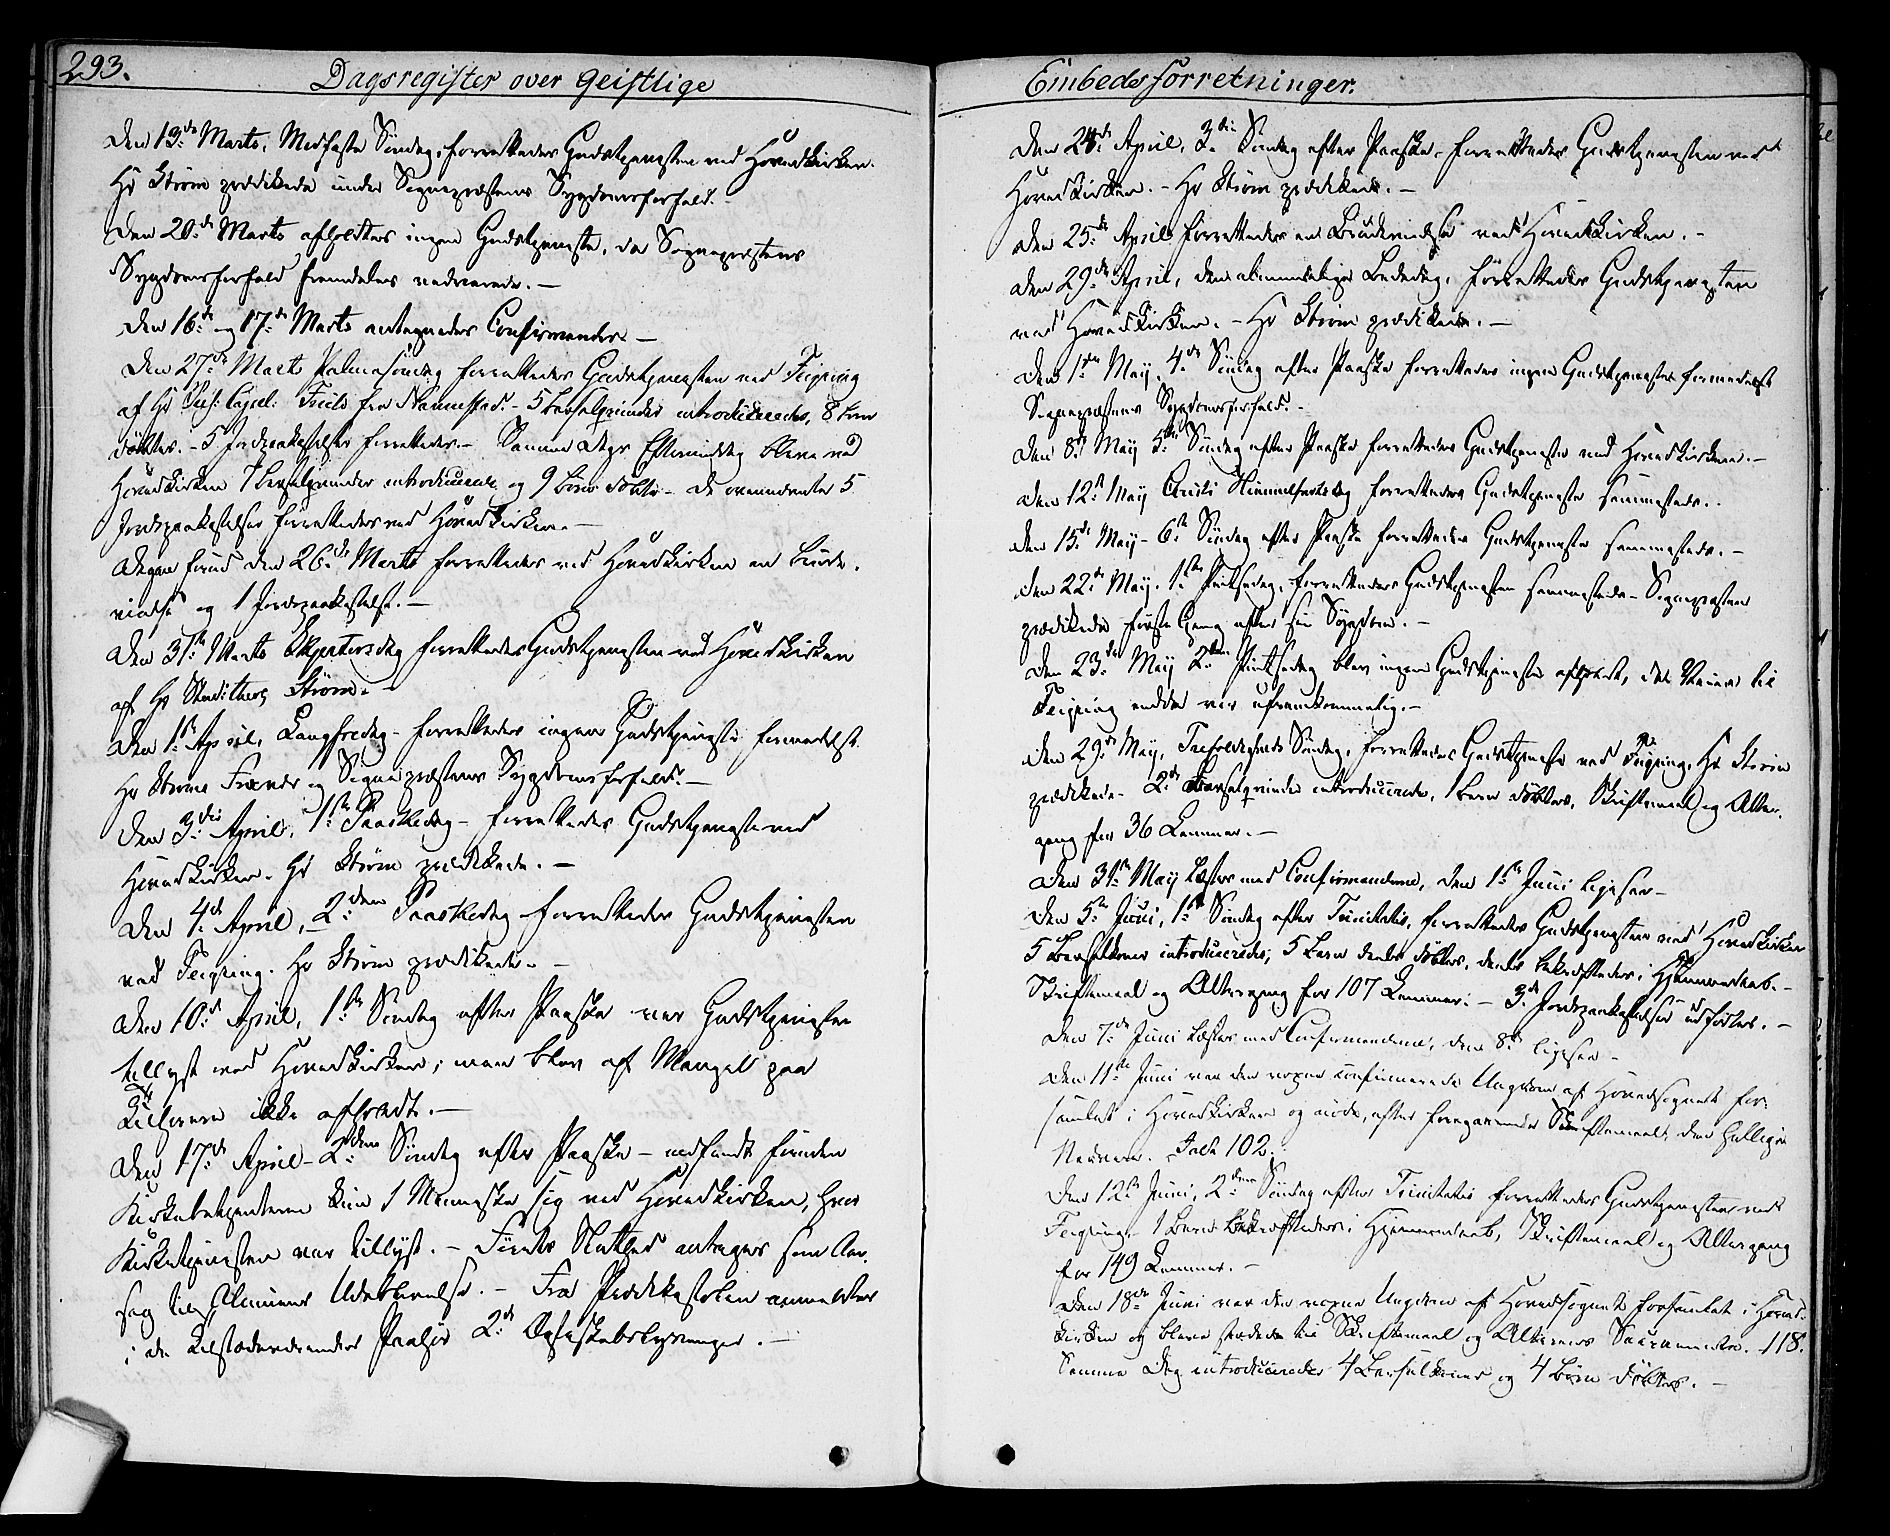 293.
Dagsregister over Geistlige
Den 13de Marts, Midfaste Söndag, forrettedes Gudstjenesten ved Hovedkirken.
Hr Strøm prædikede under Sognepræstens Sygdomsforfald. -
Den 20de Marts afholdtes ingen Gudstjeneste, da Sognepræstens
Sygdomsforfald fremdeles vedvarede. -
Den 16de og 17de Marts antegnedes Confirmander. -
Den 27de Marts Palmesöndag forrettedes Gudstjenesten ved Feiring
af Hr Pers: Capel: Friis fra Nannestad. - 5 Barselqvinder introduceredes, 8 Börn
döbtes. - 5 Jordpaakastelser forrettedes. - Samme Dags Eftermiddag bleve ved
Hovedkirken 7 Barselqvinder introducerede og 9 Börn döbte - De ovennævnte 5
Jordpaakastelser forrettedes ved Hovedkirken. -
Dagen forud den 26de Marts forrettedes ved Hovedkirken en Brude-
vielse og 1 Jordpaakastelse. -
Den 31te Marts Skjertorsdag forrettedes Gudstjenesten ved Hovedkirken
af Hr Strøm. -
Den 1ste April, Langfredag - forrettedes ingen Gudstjeneste formedelst
Hr Strøms og Sognepræstens Sygdomsforfald. -
Den 3die April, 1ste Paaskedag - forrettedes Gudstjeneste ved
Hovedkirken. Hr Strøm prædikede. -
Den 4de April, 2den Paaskedag forrettedes Gudstjenesten
ved Feiring. Hr Strøm prædikede. -
Den 10de April, 1ste Söndag efter Paaske var Gudstjeneste
tillyst ved Hovedkirken; men blev af Mangel paa
Tilhörere ikke afholdt. -
Den 17de April - 2den Söndag efter Paaske - indfandt foruden
Kirkebetjenterne kun 1 Menneske sig ved Hovedkirken, hvor
Kirketjenesten var tillyst. - antages som Aar-
sag til Almuens Udeblivelse. - Fra Prædikestolen anmeldtes
i de tilstædeværendes Paahör 2de Ægteskabslysninger. -
Embedsforretninger.
Den 24de April, 3die Söndag efter Paaske, forrettedes Gudstjenesten ved
Hovedkirken. - Hr Strøm prædikede. -
Den 25de April forrettedes en Brudevielse ved Hovedkirken. -
Den 29de April, den almindelige Bededag, forrettedes Gudstjenesten
ved Hovedkirken. - Hr Strøm prædikede. -
Den 1ste May, 4de Söndag efter Paaske forrettedes ingen Gudstjeneste formedelst
Sognepræstens Sygdomsforfald. -
Den 8de May 5te Söndag efter Paaske forrettedes Gudstjeneste ved Hovedkirken. -
Den 12te May Christi Himmelfartsdag forrettedes Gudstjeneste sammesteds. -
Den 15de May - 6te Söndag efter Paaske forrettedes Gudstjeneste sammesteds. -
Den 22de May, 1ste Pintsedag, forrettedes Gudstjenesten sammesteds - Sognepræsten
prædikede förste Gang efter sin Sygdom. -
Den 23de May 2den Pintsedag blev ingen Gudstjeneste afholdt, da til
Feiring endda var ufremkommelig. -
Den 29de May, Trefoldigheds Söndag, forrettedes Gudstjeneste ved Feiring, Hr Strøm
prædikede - 2de Barselqvinder introducerede, 1 Barn döbtes, Skriftemaal og Alter-
gang for 36 Lemmer. -
Den 31te May læstes med Confirmanderne, den 1ste Juni ligesaa -
Den 5te Juni, 1ste Söndag efter Trinitatis, forrettedes Gudstjenesten ved Hovedkirken
5 Barselkoner introduceredes, 5 Barn döbtes, bekræftedes i Hjemmedaab. -
Skriftemaal og Altergang for 107 Lemmer. - 3de Jordpaakastelser udfördes. -
Den 7de Juni læstes med Confirmanderne, den 8de ligesaa -
Den 11te Juni var den voxne confirmerede Ungdom af Hovedsognet for-
samlet i Hovedkirken og nöd, efter foregaaende Skriftemaal, den hellige
Nadvere. Talt 102.
Den 12te Juni, 2den Söndag efter Trinitatis forrettedes Gudstjenesten ved
Feiring. 1 Barn bekræftedes i Hjemmedaab, Skriftemaal og Altergang
for 149 Lemmer. -
Den 18de Juni var den voxne Ungdom af Hovedsognet forsamlet i Hoved-
kirken og bleve stædede til Skriftemaal og Alterens Sacramente. 118.
Samme Dag introduceredes 4 Barselkoner og 4 Börn döbtes. -